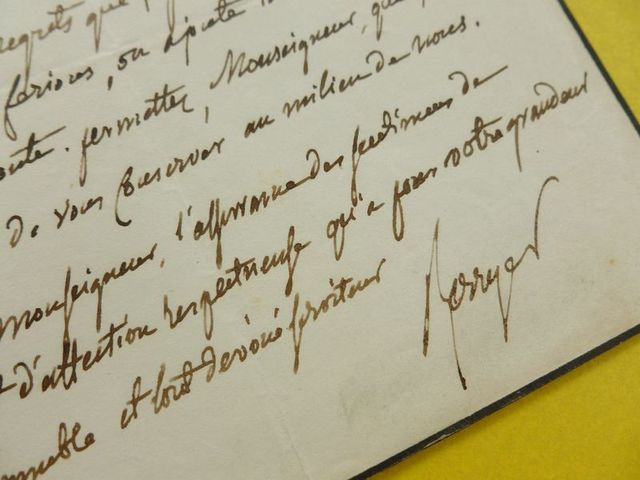 regrets que
ferions, on ajoute
permettez, Monseigneur, que
de vous conserver au milieu de nous.
Monseigneur, l'assurance des sentimens de
d'attention respectueuse qu'a pour votre grandeur
et tout dévoué serviteur
Berryer